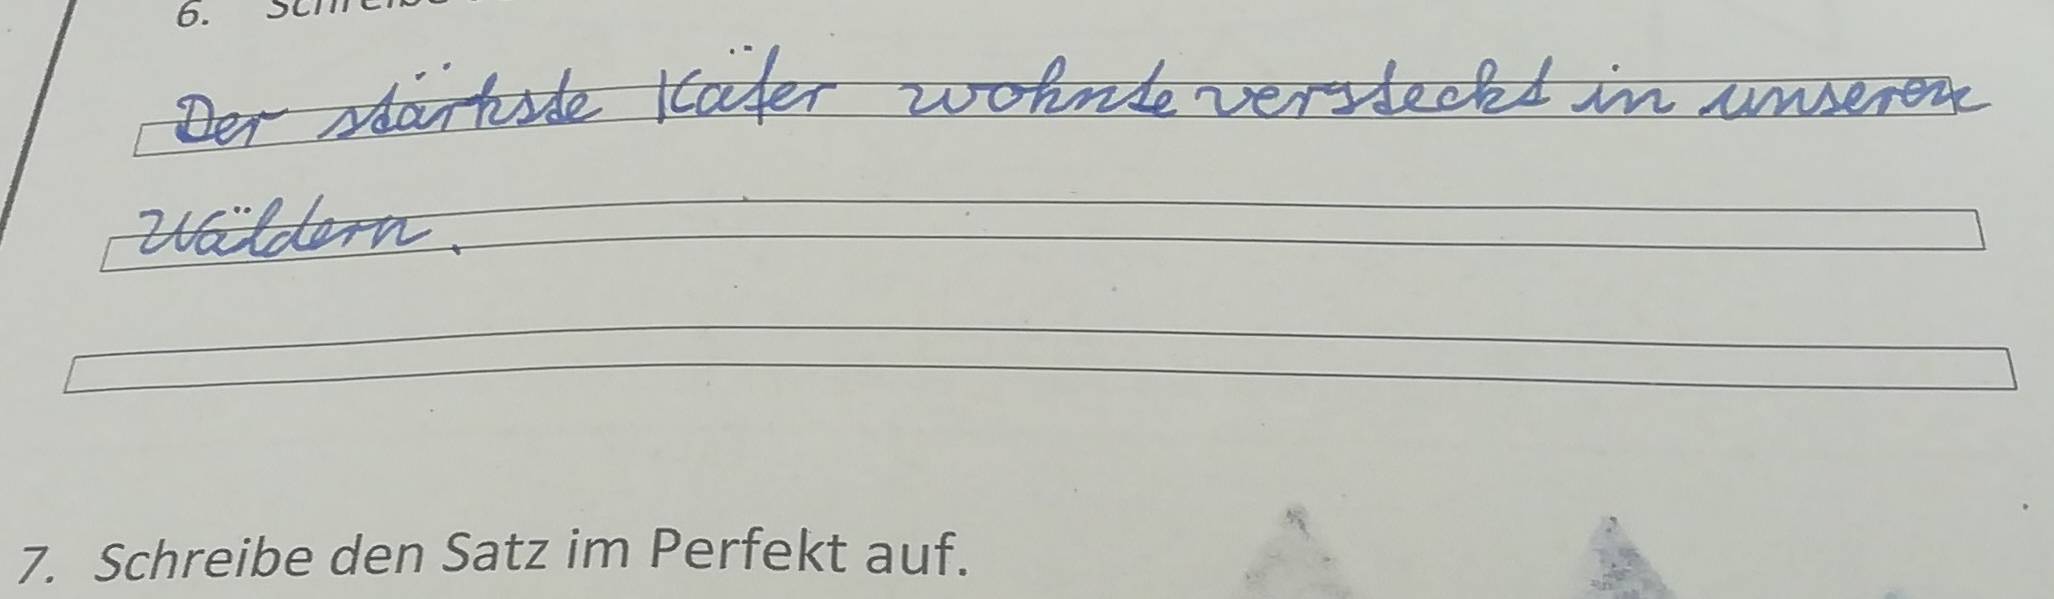 6. Schreibe
Der stärkste Käfer wohnte versteckt in unseren
Wäldern.
7. Schreibe den Satz im Perfekt auf.